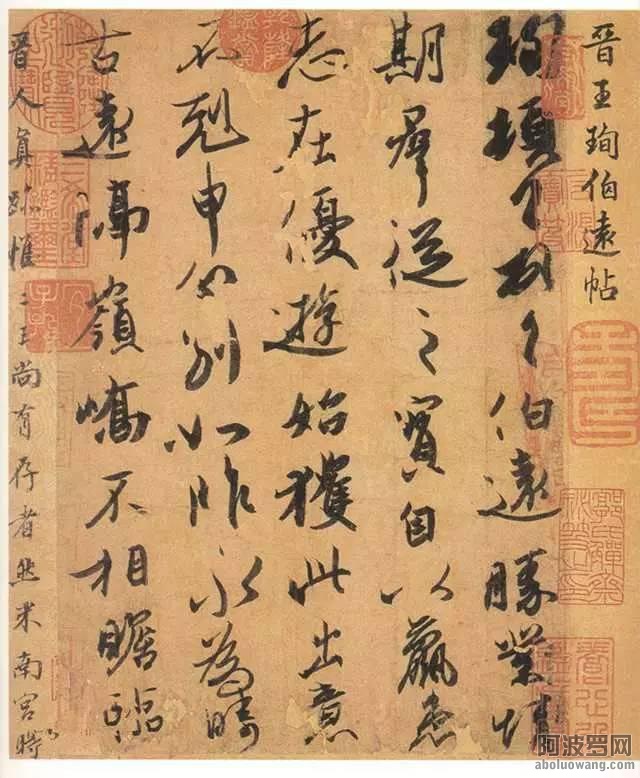 晉王珣伯遠帖
珣頓首頓首伯遠勝業情
期羣從之寶自以羸患
志在優遊始獲此出意
不剋申分別如昨永為疇
古遠隔嶺嶠不相瞻臨
晉人真跡惟二王尚有存者然米南宮時
阿波罗网
aboluowang.com